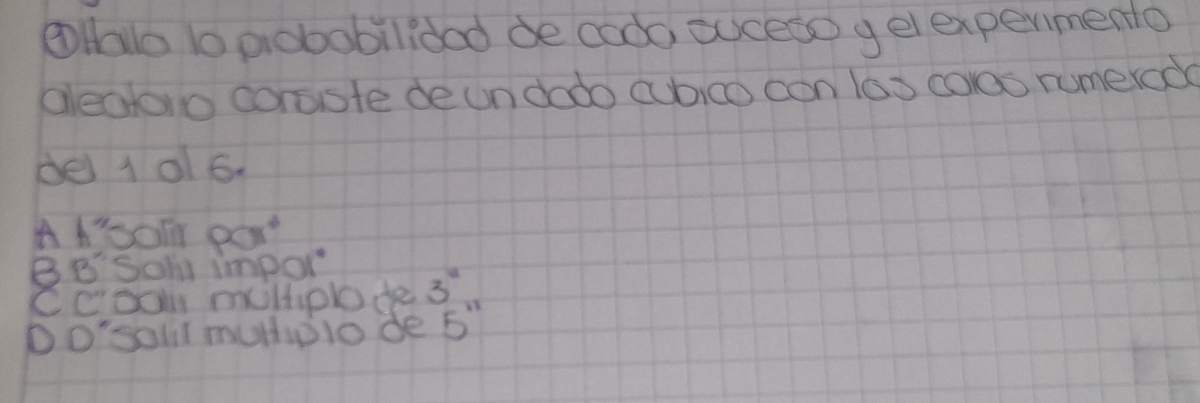 ① Hallo la probabilidad de cada suceso y el experimento
aleatorio consiste de un dado cubico con las caras numerada
del 1 al 6.
A A "salir par"
B B "Salir impar"
C C "Salir múltiplo de 3"
D D "salir multiplo de 5"